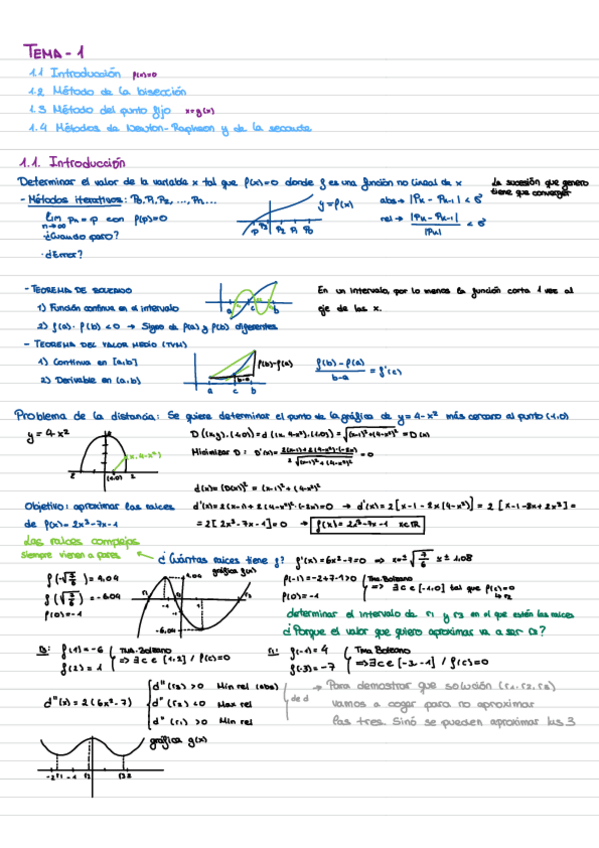 TEMA - 1
1.1 Introducción f(x)=0
1.2 Método de la bisección
1.3 Método del punto fijo x=g(x)
1.4 Métodos de Newton-Raphson y de la secante
1.1. Introducción
Determinar el valor de la variable x tal que f(x)=0 donde f es una función no lineal de x
La sucesión que genero tiene que converger
- Métodos iterativos: P0, P1, P2, ..., Pn, ...
y=f(x)
abs → |Pk - Pk-1| <
lim Pn = P con f(p)=0
n→∞
rel → |Pk - Pk-1| / |Pk| <
¿Cuándo paro?
¿Error?
- TEOREMA DE BOLZANO
En un intervalo, por lo menos la función corta 1 vez al
1) Función continua en el intervalo
eje de las x.
2) f(a) · f(b) < 0 → Signo de f(a) y f(b) diferentes
- TEOREMA DEL VALOR MEDIO (TVM)
1) Continua en [a,b]
f(b)-f(a)
(f(b) - f(a)) / (b-a) = f'(c)
2) Derivable en (a,b)
b-a
a c b
Problema de la distancia: Se quiere determinar el punto de la gráfica de y = 4-x² más cercano al punto (1,0)
y = 4-x²
(x, 4-x²)
D((x,y), (1,0)) = d((x, 4-x²), (1,0)) = √((x-1)²+(4-x²)²) = D(x)
Minimizar D: D'(x) = (2(x-1)+2(4-x²)·(-2x)) / (2√((x-1)²+(4-x²)²)) = 0
(1,0)
d(x) = (D(x))² = (x-1)²+(4-x²)²
Objetivo: aproximar las raíces
d'(x) = 2(x-1)+2(4-x²)·(-2x) = 0 → d'(x) = 2[x-1-2x(4-x²)] = 2[x-1-8x+2x³] =
de f(x) = 2x³-7x-1
= 2[2x³-7x-1] = 0 → f(x) = 2x³-7x-1 x∈ℝ
Las raíces complejas
siempre vienen a pares
¿Cuántas raíces tiene f? f'(x) = 6x²-7 = 0 ⇒ x = ±√(7/6) ≈ ±1,08
gráfica f(x)
f(-√(7/6)) = 4,04
f(√(7/6)) = -6,04
f(0) = -1
4,04
-6,04
f(-1) = -2+7-1>0
f(0) = -1
Tma. Bolzano
⇒ ∃ c ∈ [-1,0] tal que f(c)=0
determinar el intervalo de r1 y r3 en el que están las raíces
¿Porque el valor que quiero aproximar va a ser r3?
r3: f(1) = -6
f(2) = 1
Tma. Bolzano
⇒ ∃ c ∈ [1,2] / f(c)=0
r1: f(-1) = 4
f(-3) = -7
Tma Bolzano
⇒ ∃ c ∈ [-3,-1] / f(c)=0
d''(x) = 2(6x²-7)
d''(r3) > 0 Min rel (abs)
d''(r2) < 0 Max rel
d''(r1) > 0 Min rel
de d
→ Para demostrar que solución (r1, r2, r3)
vamos a coger para no aproximar
las tres. Sinó se pueden aproximar las 3
gráfica g(x)
-2 r1 -1 r2 r3 2